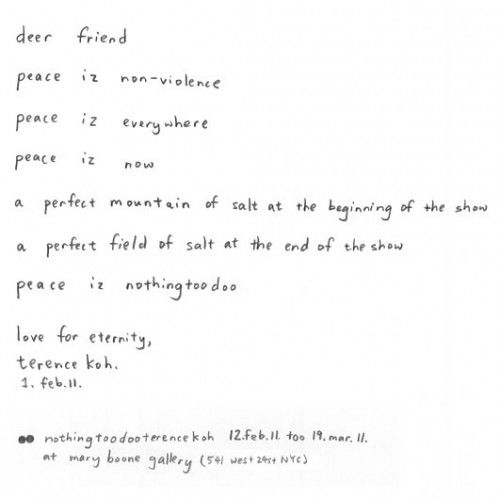 deer friend
peace iz non-violence
peace iz everywhere
peace iz now
a perfect mountain of salt at the beginning of the show
a perfect field of salt at the end of the show
peace iz nothingtoodoo
love for eternity,
terence koh.
1. feb.11.
nothingtoodooterencekoh 12.feb.11. too 19.mar.11.
at mary boone gallery (541 west 24st NYC)